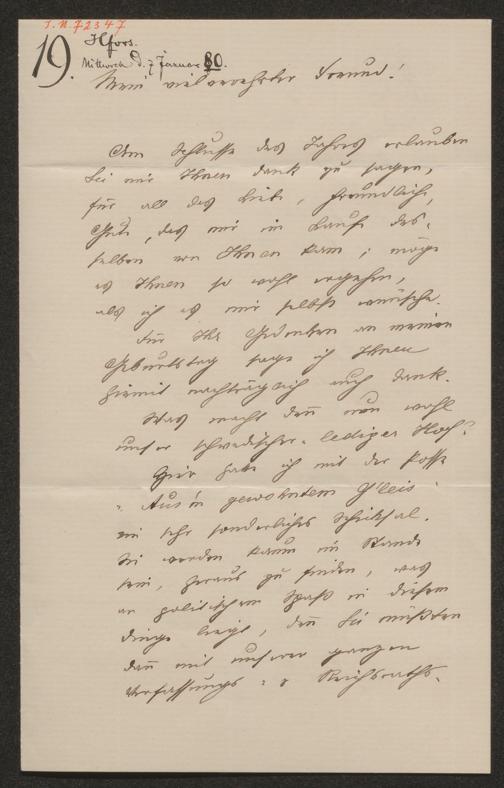 I.N. 72347
19.
Hfors.
Mittwoch d. 7 Januar 80.
Mein vielverehrter Freund!
Am Schlusse des Jahres erlauben
Sie mir Ihnen Dank zu sagen,
für all das Liebe, freundliche,
Gute, das mir im Laufe des-
selben von Ihnen kam; möge
es Ihnen so wohl ergehen,
als ich es mir selbst wünsche.
Für Ihr Gedenken an meinen
Geburtstag sage ich Ihnen
hiermit nachträglich auch Dank.
Was macht den nun wohl
unser schwedischer-lediger Hof?
Hier habe ich mit der Posse
"Aus'n gewohnten G'leis"
ein sehr sonderliches Schicksal.
Sie werden kaum im Stande
sein, heraus zu finden, was
an politischem Spaß in diesem
Dinge liegt, den Sie müßten
dan mit unserer ganzen
Verfassungs- & Reichsraths-